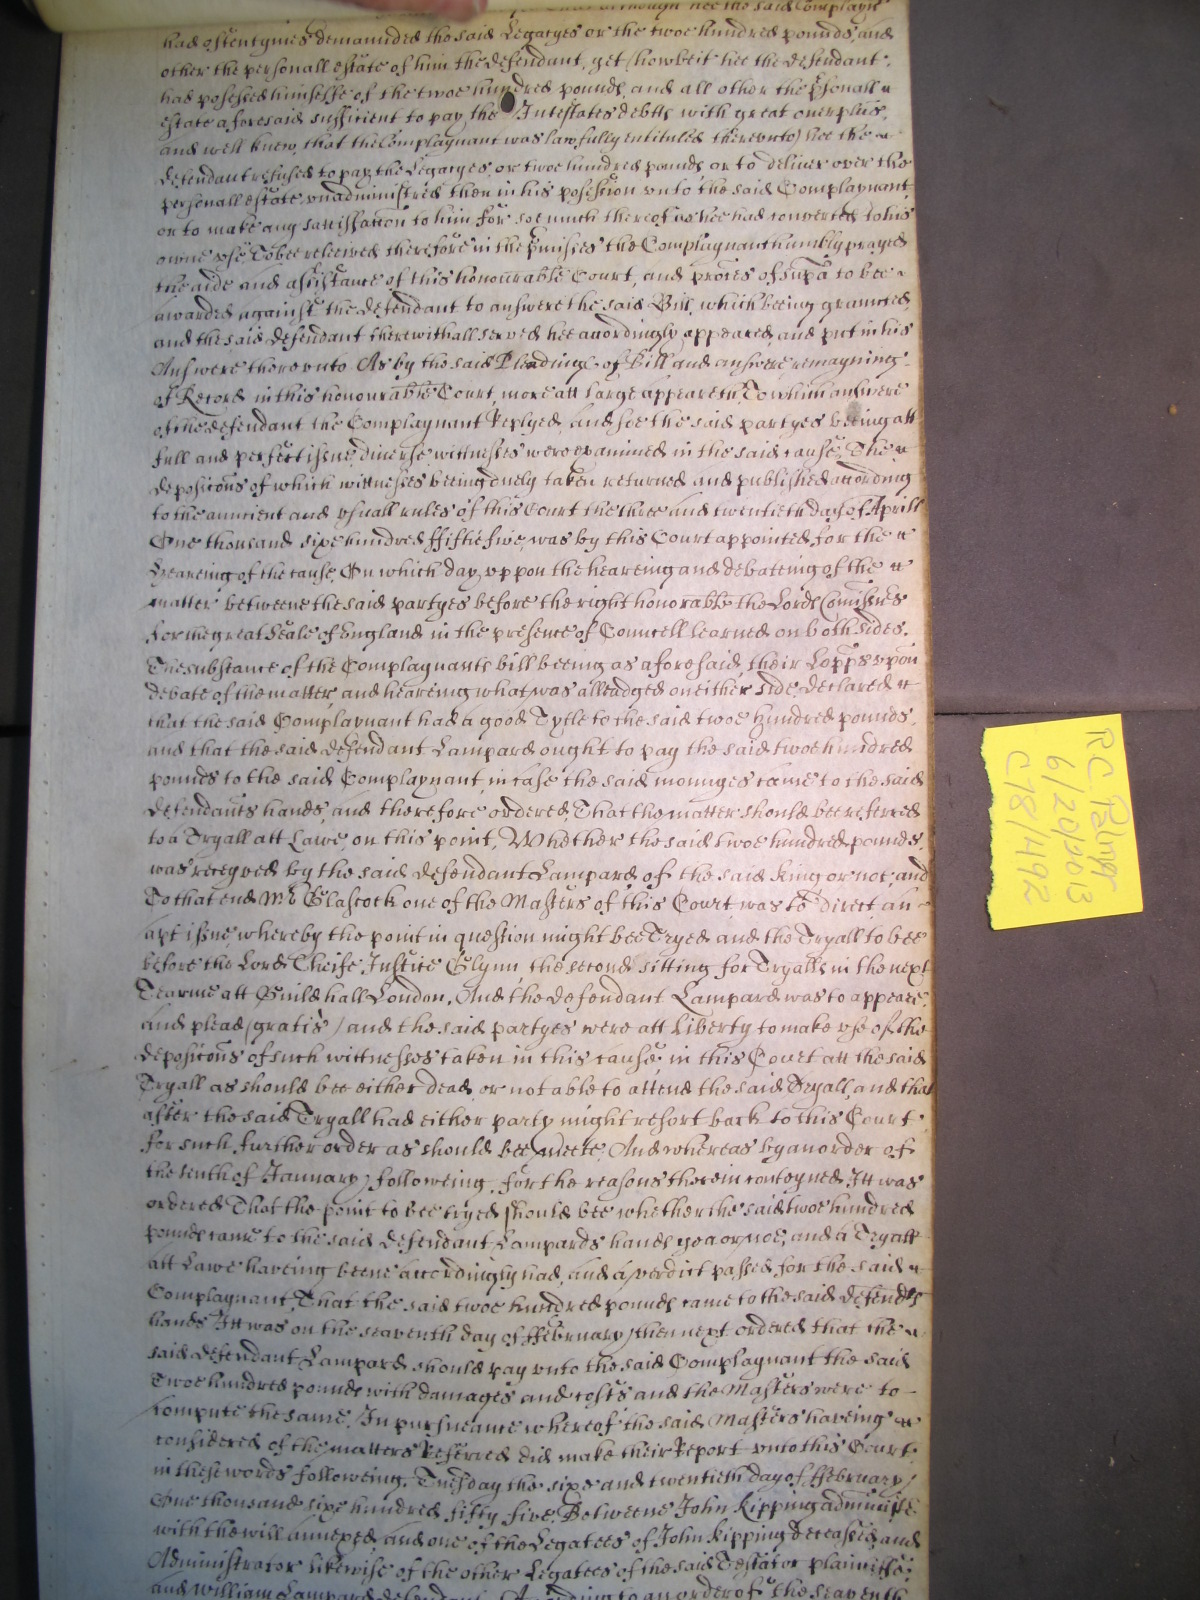 although hee the said Complayn
had oftentymes demaunded the said Legacyes or the twoe hundred pounds, and
other the personall estate of him the defendant, yet (howbeit hee the defendant
had possessed himselfe of the twoe hundred pounds, and all other the psonall
estate aforesaid sufficient to pay the Intestates debts with great overplus,
and well knew that the Complaynant was lawfully entituled thereunto) hee the
defendant refused to pay the Legacyes, or twoe hundred pounds or to deliver over the
personall estate unadministred then in his possession unto the said Complaynant
or to make any sattisfaccon to him for soe much thereof as hee had converted to his
owne use, To bee releived therefore in the pmisses the Complaynant humbly prayed
the aide and assistance of this honourable Court, and proces of supa to bee
awarded against the defendant to answere the said Bill, which beeing graunted
and the said defendant therewithall served hee accordingly appeared, and put in his
Answere thereunto As by the said Pleadings of Bill and answere remayning
of Record in this honourable Court, more att large appeareth, To which answere
of the defendant the Complaynant Replyed, and soe the said partyes beeing att
full and perfect issue, diverse wittnesses were examined in the said cause, The
deposicons of which wittnesses beeing duely taken returned and published according
to the auncient and usuall rules of this Court the three and twentieth day of Aprill
One thousand sixe hundred ffiftie five, was by this Court appointed for the
heareing of the cause, On which day uppon the heareing and debateing of the
matter betweene the said partyes before the right honorable the Lords Comissrs
for the great Seale of England in the presence of Councell learned on both sides.
The substance of the Complaynants bill beeing as aforesaid, their Lopps upon
debate of the matter and heareing what was alleadged on either side, declared
that the said Complaynant had a good Tytle to the said twoe hundred pounds,
and that the said defendant Lampard ought to pay the said twoe hundred
pounds to the said Complaynant, in case the said monnyes came to the said
defendants hands, and therefore ordered, That the matter should bee referred
to a Tryall att Lawe, on this point, Whether the said twoe hundred pounds,
was receyved by the said defendant Lampard of the said King or not, and
To that end Mr Glascock one of the Masters of this Court was to direct an
apt issue, whereby the point in question might bee Tryed and the Tryall to bee
before the Lord Cheife Justice Glynn, the second sitting for Tryalls in the next
Tearme att Guild hall London, And the defendant Lampard was to appeare,
and plead (gratis) and the said partyes were att Liberty to make use of the
deposicons of such wittnesses taken in this cause in this Court att the said
Tryall as should bee either dead, or not able to attend the said Tryall, and that
after the said Tryall had either party might resort back to this Court
for such further order as should bee meete, And whereas by an order of
the tenth of January followeing, for the reasons therein conteyned, Itt was
ordered That the point to bee tryed should bee whether the said twoe hundred
pounds came to the said defendant Lampards hands yea or noe, and a Tryall
att Lawe haveing beene accordingly had, and a verdict passed for the said
Complaynant, That the said twoe hundred pounds came to the said defendts
hands Itt was on the seaventh day of ffebruary then next ordered that the
said defendant Lampard should pay unto the said Complaynant the said
Twoe hundred pounds with damages and costs and the Masters were to
compute the same, In pursueance whereof the said Masters haveing
considered of the matters Referred did make their Report unto this Court
in these words followeing. Tuesday the sixe and twentieth day of ffebruary
One thousand sixe hundred fifty five, Betweene John Kipping administr
with the will annexed, and one of the Legatees of John Kipping deceased, and
Administrator likewise of the other Legatees of the said Testator plaintiffe,
and William Lampard defendant, According to an order of the seaventh
RC Palmer
6/20/2013
C78/492